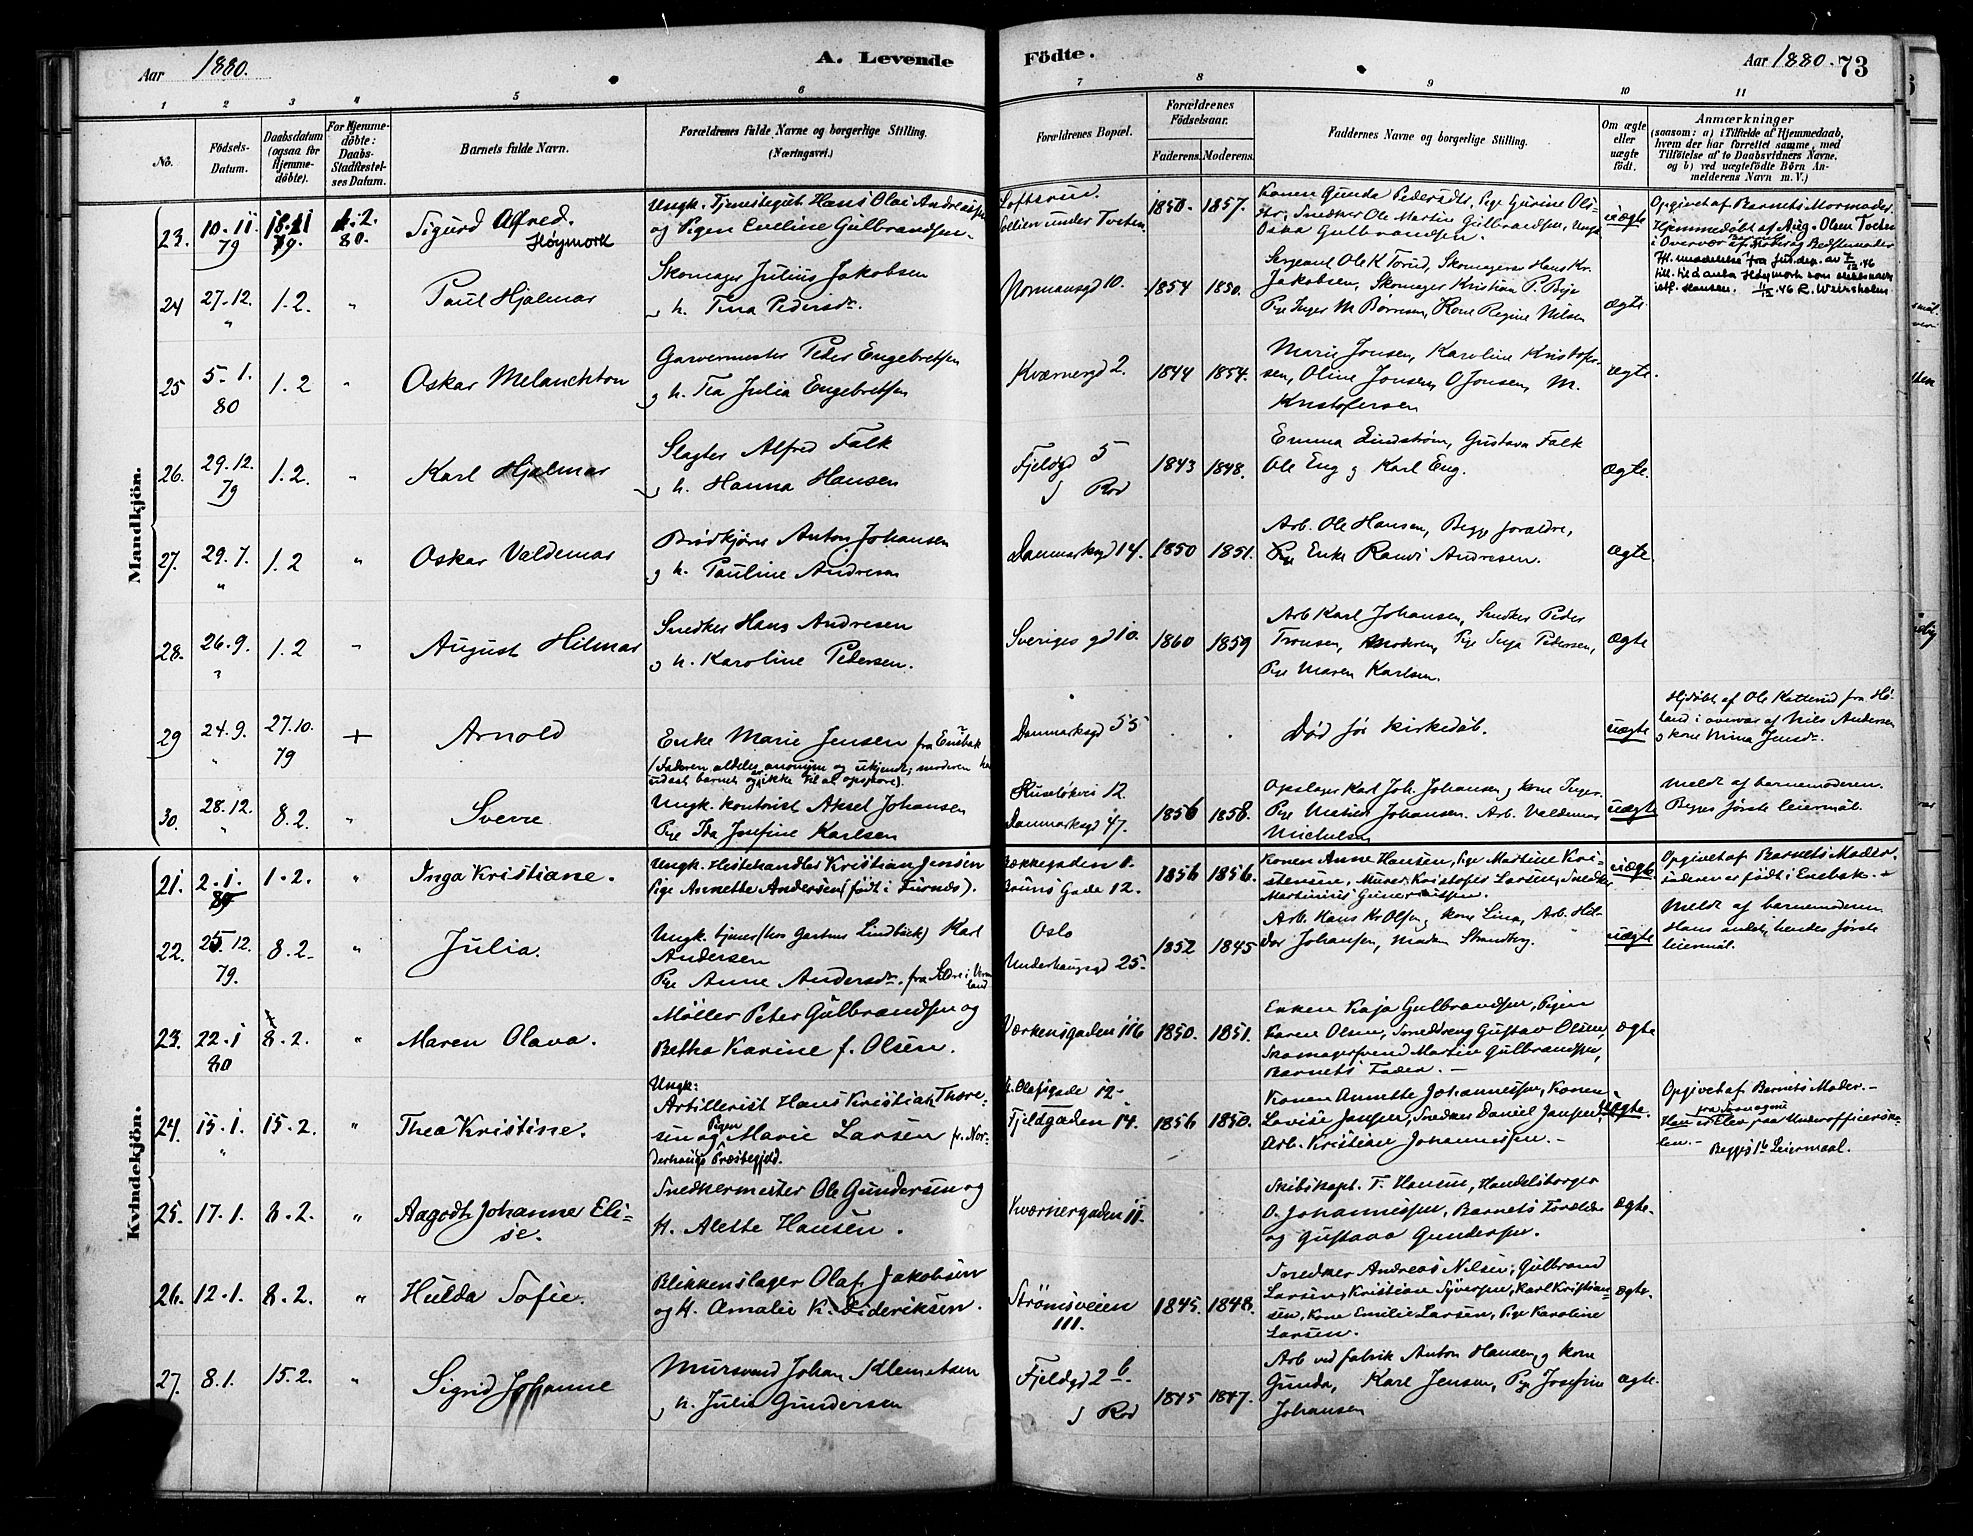 Aar 1880.
A. Levende
Födte.
Aar 1880. 73
1 2 3 4 5 6 7 8 9 10 11
No.
Födsels-
Datum.
Daabsdatum
(ogsaa for
Hjemme-
döbte).
For Hjemme-
döbte:
Daabs-
Stadfæstel-
ses Datum.
Barnets fulde Navn.
Forældrenes fulde Navne og borgerlige Stilling.
(Næringsvei.)
Forældrenes Bopæl.
Forældrenes
Födselsaar.
Faderens. Moderens.
Faddernes Navne og borgerlige Stilling.
Om ægte
eller
uægte
født.
Anmærkninger
(saasom: a) i Tilfælde af Hjemmedaab,
hvem der har forrettet samme, med
Tilföielse af to Daabsvidners Navne,
og b) ved uægtefödte Börn An-
melderens Navn m. V.)
Mandkjön.
23. 10.11 79 18.11 79. 1.2. 80. Sigurd Alfred.
Høymork
Ungk. Tjenestegut Hans Olai Andreassen
og Pigen Eveline Gulbrandsen.
Loftsrud.
Sollien under Tveten
1850. 1857.
Konen Gunda Pedersdtr, Pige Gurine Ols-
dtr, Snedker Ole Martin Gulbrandsen, Ungk.
Oska Gulbrandsen.
uægte
Opgivet af Barnets Mormoder.
Hjemmedøbt af Aug. Olsen Tveten
i Overvær af Barnets Moder og Bedstemoder
24 27.12. " 1.2. " Paul Hjalmar
Skomager Julius Jakobsen
og h. Tina Pedersdr.
Normansgd 10.
1854 1850.
Sergeant Ole K Torud, Skomagersv Hans Kr.
Jakobsen, Skomager Kristian P. Bye
Pige Inger M Børresen, Kone Regine Nilsen
ægte
25 5.1. 80 1.2 " Oskar Melanchton
Garvermester Peder Engebretsen
og h. Tea Julia Engebretsen
Kværnergd 2.
1844 1854.
Marie Jonsen, Karoline Kristofer-
sen, Oline Jonsen, O Jonsen, M.
Kristofersen
ægte.
26. 29.12. 79 1.2. " Karl Hjalmar
Slagter Alfred Falk
og h. Hanna Hansen
Fjeldgd 5
1843 1848.
Emma Lindstrøm, Gustava Falk
Ole Eng og Karl Eng.
ægte.
27. 29.7. " 1.2 " Oskar Valdemar
Brødkjører Anton Johansen
og h. Pauline Andresen
Danmarksgd 14.
1850 1851.
Arb. Ole Hansen, Begge foraldre,
Enke Ranvi Andresen.
ægte.
28. 26.9. " 1.2 " August Hilmar
Snedker Hans Andresen
og h. Karoline Pedersen.
Sveriges gd 10.
1860 1859
Arb Karl Johansen, Snedker Peder
Tronsen, Moderen, Pige Inga Pedersen,
Pige Maren Karlsen.
ægte
29 24.9. " 27.10. 79 + Arnold
Enke Marie Jensen fra Enebak
(Faderen aldeles anonym og ukjendt; moderen har
udsat barnet og er ikke til at opspore).
Danmarksgd 55
Død før kirkedåb.
uægte
Hjdøbt af Ole Katterud fra Hø-
land i overvær af Nils Andersen
og kone Mina Jensdr.
30. 28.12. " 8.2. " Sverre
Ungk. kontorist Aksel Johansen
Pige Ida Josefine Karlsen
Ruseløkvei 12.
Danmarksgd 47.
1856 1858.
Opslager Karl Joh. Johansen og kone Inger.
Pige Johansen. Arb. Valdemar
Michelsen
uægte
Meldt af barnemoderen.
Begges første leiermål.
Kvindekjön.
21. 2.1. 80 1.2. " Inga Kristiane.
Ungk. Hestehandler Kristian Jensen
Pige Annette Andersen (født i Furnes).
Bækkegaden 1.
Bruns Gade 12.
1856 1856.
Konen Anne Hansen, Pige Martine Kri-
stensen, Murer Kristofer Larsen, Snedker
Martinius Gunerussen.
uægte
Opgivet af Barnets Moder.
Faderen er født i Enebak.
22. 25.12. 79. 8.2. " Julia.
Ungk. tjener (hos Gartner Lindbäck) Karl
Andersen
Pige Anne Andersdr. fra i Verm
land
Oslo
Underhaugsgd 25.
1852 1845
Arb. Hans Kr. Olsen og kone Lina, Arb. Hil-
dor Johansen, Madam Strandberg.
uægte
Meldt af barnemoderen
Hans andet, hendes første
leiermål.
23. 22.1 80 8.2. " Maren Olava.
Møller Peter Gulbrandsen og
Betha Karine f. Olsen.
Værkensgaden 116
1850. 1851.
Enken Kaja Gulbrandsen, Pigen
Karen Olsen, Snedkersv Gustav Olsen,
Skomagersvend Martin Gulbrandsen,
Barnets Fader.
ægte
24. 15.1. " 15.2. " Thea Kristine.
Ungk:
Artillerist Hans Kristian Thore-
sen og Pigen Marie Larsen fr. Nor-
derhougs Præstegjeld.
Kr. Olafsgade 12
Fjeldgaden 14.
1856 1850.
Konen Annette Johannessen, Konen
Lovise Jansen, Snedker Daniel Jansen,
Arb. Kristian Johannessen.
uægte.
Opgivet af Barnets Moder.
Han er Elev paa Underofficersko-
len.
Begges 1ste Leiermaal.
25. 17.1. 8.2. " Aagodt Johanne Eli-
se.
Snedkermester Ole Gundersen og
H. Alette Hansen.
Kværnergaden 11.
Skibskapt. T. Hansen, Handelsborger
O. Johannessen, Barnets Forældre
og Gustava Gundersen.
ægte.
26. 12.1. 8.2. " Hulda Sofie.
Blikkenslager Olaf Jakobsen
og H. Amalie K. Dideriksen.
Strømsveien
111.
1845. 1848.
Snedker Andreas Nilsen, Gulbrand
Larsen, Kristian Syversen, Karl Kristian-
sen, Kone Emilie Larsen, Pige Karoline
Larsen.
ægte.
27. 8.1. 15.2. " Sigrid Johanne
Mursvend Johan Klemetsen
og h. Julie Gundersen
Fjeldgd 2b
1845 1847.
Arb ved fabrik Anton Hansen og kone
Gunda, Karl Jensen, Pige Josefine
Johansen
ægte.